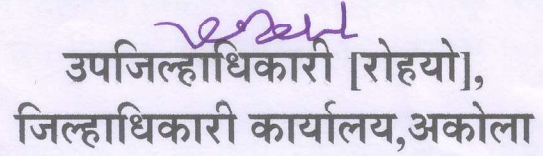 उपजिल्हाधिकारी [रोहयो],
जिल्हाधिकारी कार्यालय,अकोला